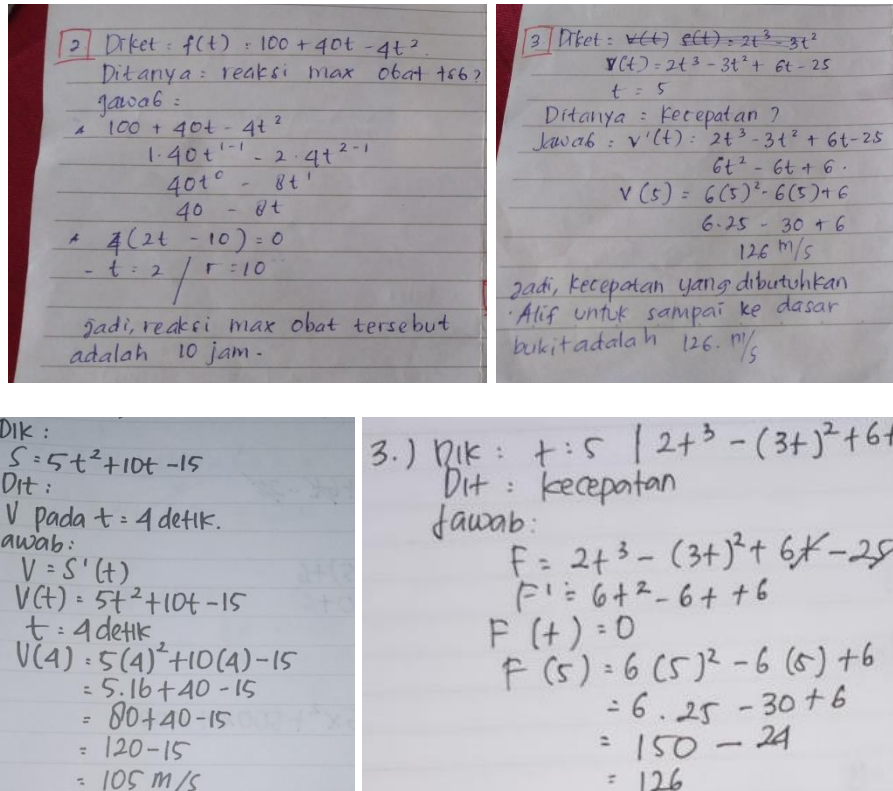 2 Diket : f(t) : 100 + 40t - 4t²
Ditanya : reaksi max obat tsb?
Jawab :
100 + 40t - 4t²
1.40t¹⁻¹ - 2.4t²⁻¹
40t⁰ - 8t¹
40 - 8t
4(2t - 10) = 0
- t = 2 / t = 10
Jadi, reaksi max obat tersebut
adalah 10 jam.
3 Diket : v(t) s(t) = 2t³ - 3t²
V(t) = 2t³ - 3t² + 6t - 25
t = 5
Ditanya : Kecepatan ?
Jawab : v'(t) : 2t³ - 3t² + 6t - 25
6t² - 6t + 6.
V(5) = 6(5)² - 6(5) + 6
6.25 - 30 + 6
126 m/s
Jadi, kecepatan yang dibutuhkan
Alif untuk sampai ke dasar
bukit adalah 126. m/s
DIK :
S = 5t² + 10t - 15
Dit :
V pada t = 4 detik.
awab :
V = S'(t)
V(t) = 5t² + 10t - 15
t = 4 detik
V(4) = 5(4)² + 10(4) - 15
= 5.16 + 40 - 15
= 80 + 40 - 15
= 120 - 15
= 105 m/s
3.) Dik : t : 5 | 2t³ - (3t)² + 6t
Dit : kecepatan
Jawab :
F = 2t³ - (3t)² + 6t - 25
F' = 6t² - 6t + 6
F (t) = 0
F (5) = 6 (5)² - 6 (5) + 6
= 6 . 25 - 30 + 6
= 150 - 24
= 126